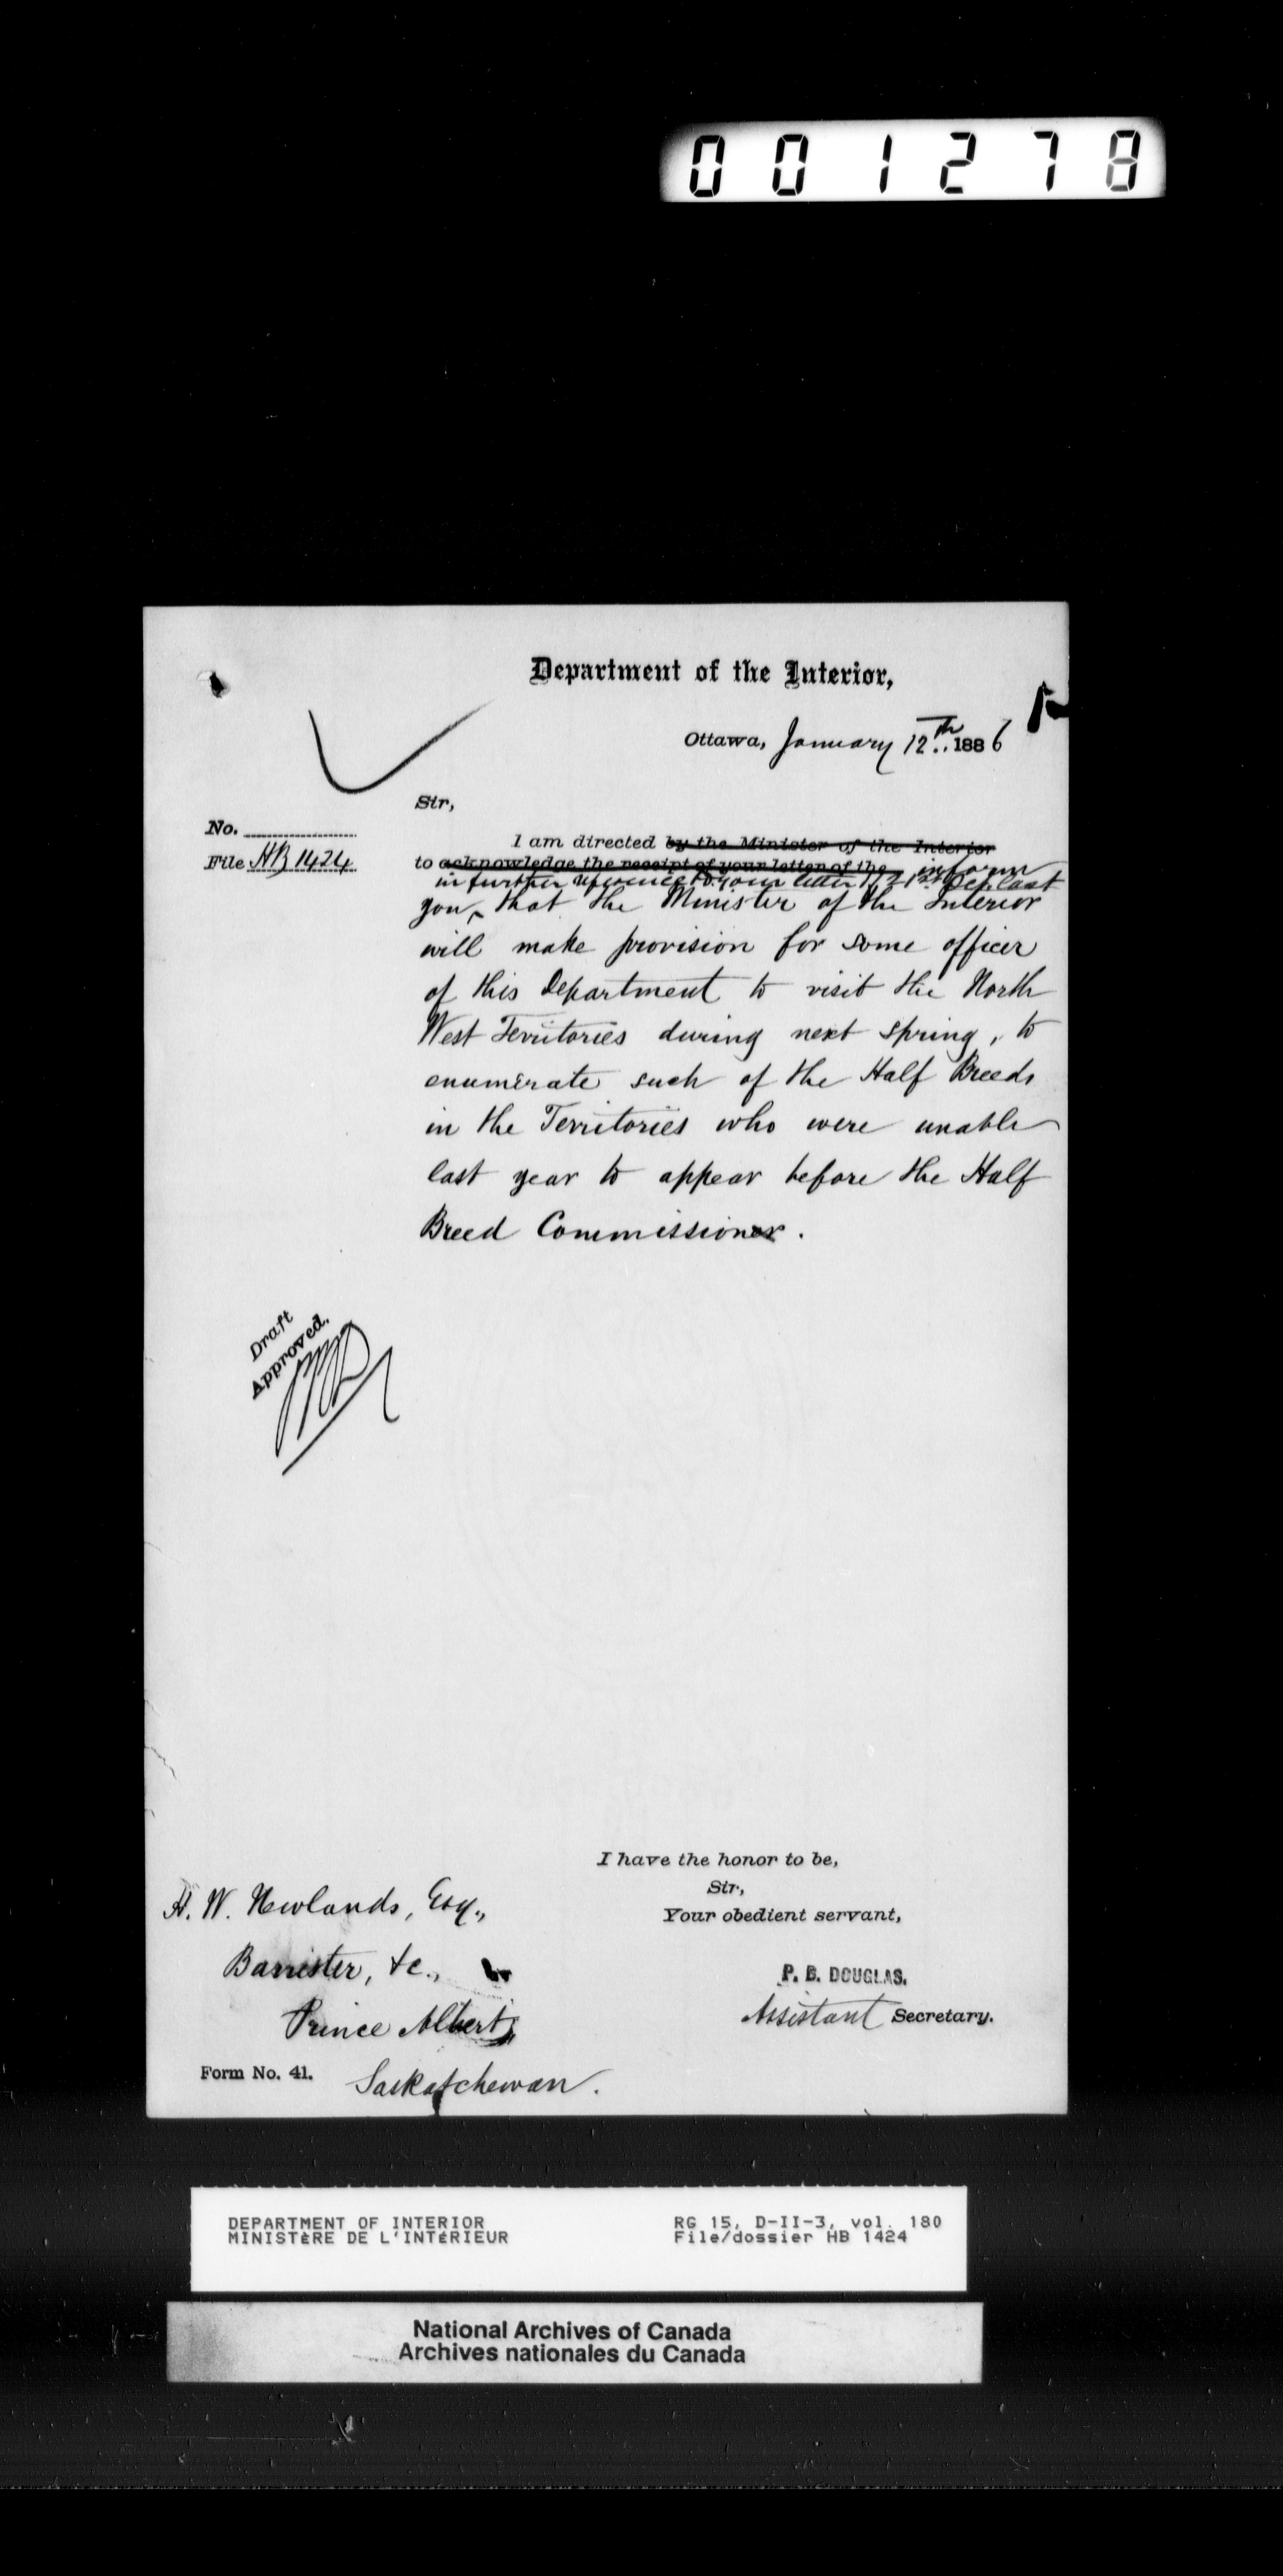 001278
Department of the Interior,
Ottawa, January 12th 1886
Sir,
No.
File HB 1424
I am directed by the Minister of the Interior
to acknowledge the receipt of your letter of the inform
in further reference to your letter of 21st Dec. last
you, that the Minister of the Interior
will make provision for some officer
of this Department to visit the North
West Territories during next spring, to
enumerate such of the Half Breeds
in the Territories who were unable
last year to appear before the Half
Breed Commission.
Draft
Approved.
I have the honor to be,
Sir,
Your obedient servant,
P. B. DOUGLAS.
Assistant Secretary.
H. W. Newlands, Esq.,
Barrister, &c.,
Prince Albert,
Saskatchewan.
Form No. 41.
DEPARTMENT OF INTERIOR
MINISTÈRE DE L'INTÉRIEUR
RG 15, D-II-3, vol. 180
File/dossier HB 1424
National Archives of Canada
Archives nationales du Canada